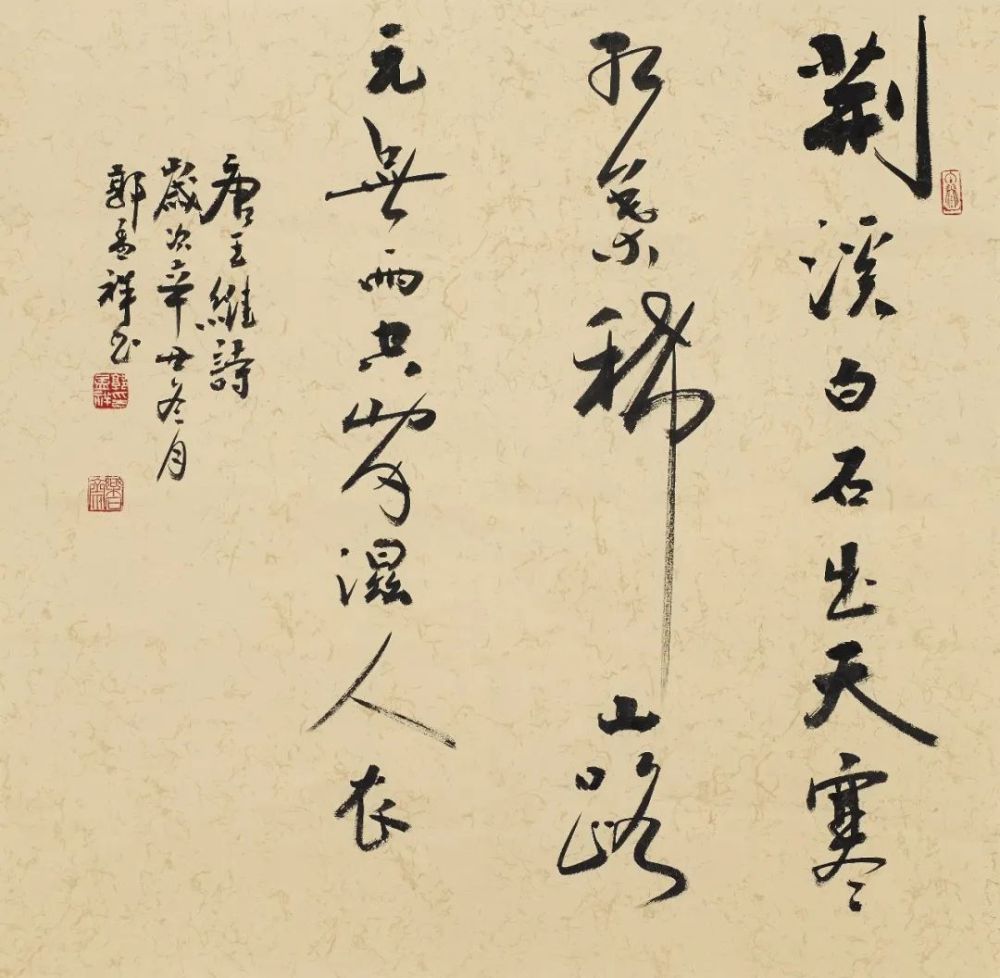 荆溪白石出天寒
红葉稀山路
元無雨空翠濕人衣
唐王維詩
歲次辛丑冬月
郭孟祥书